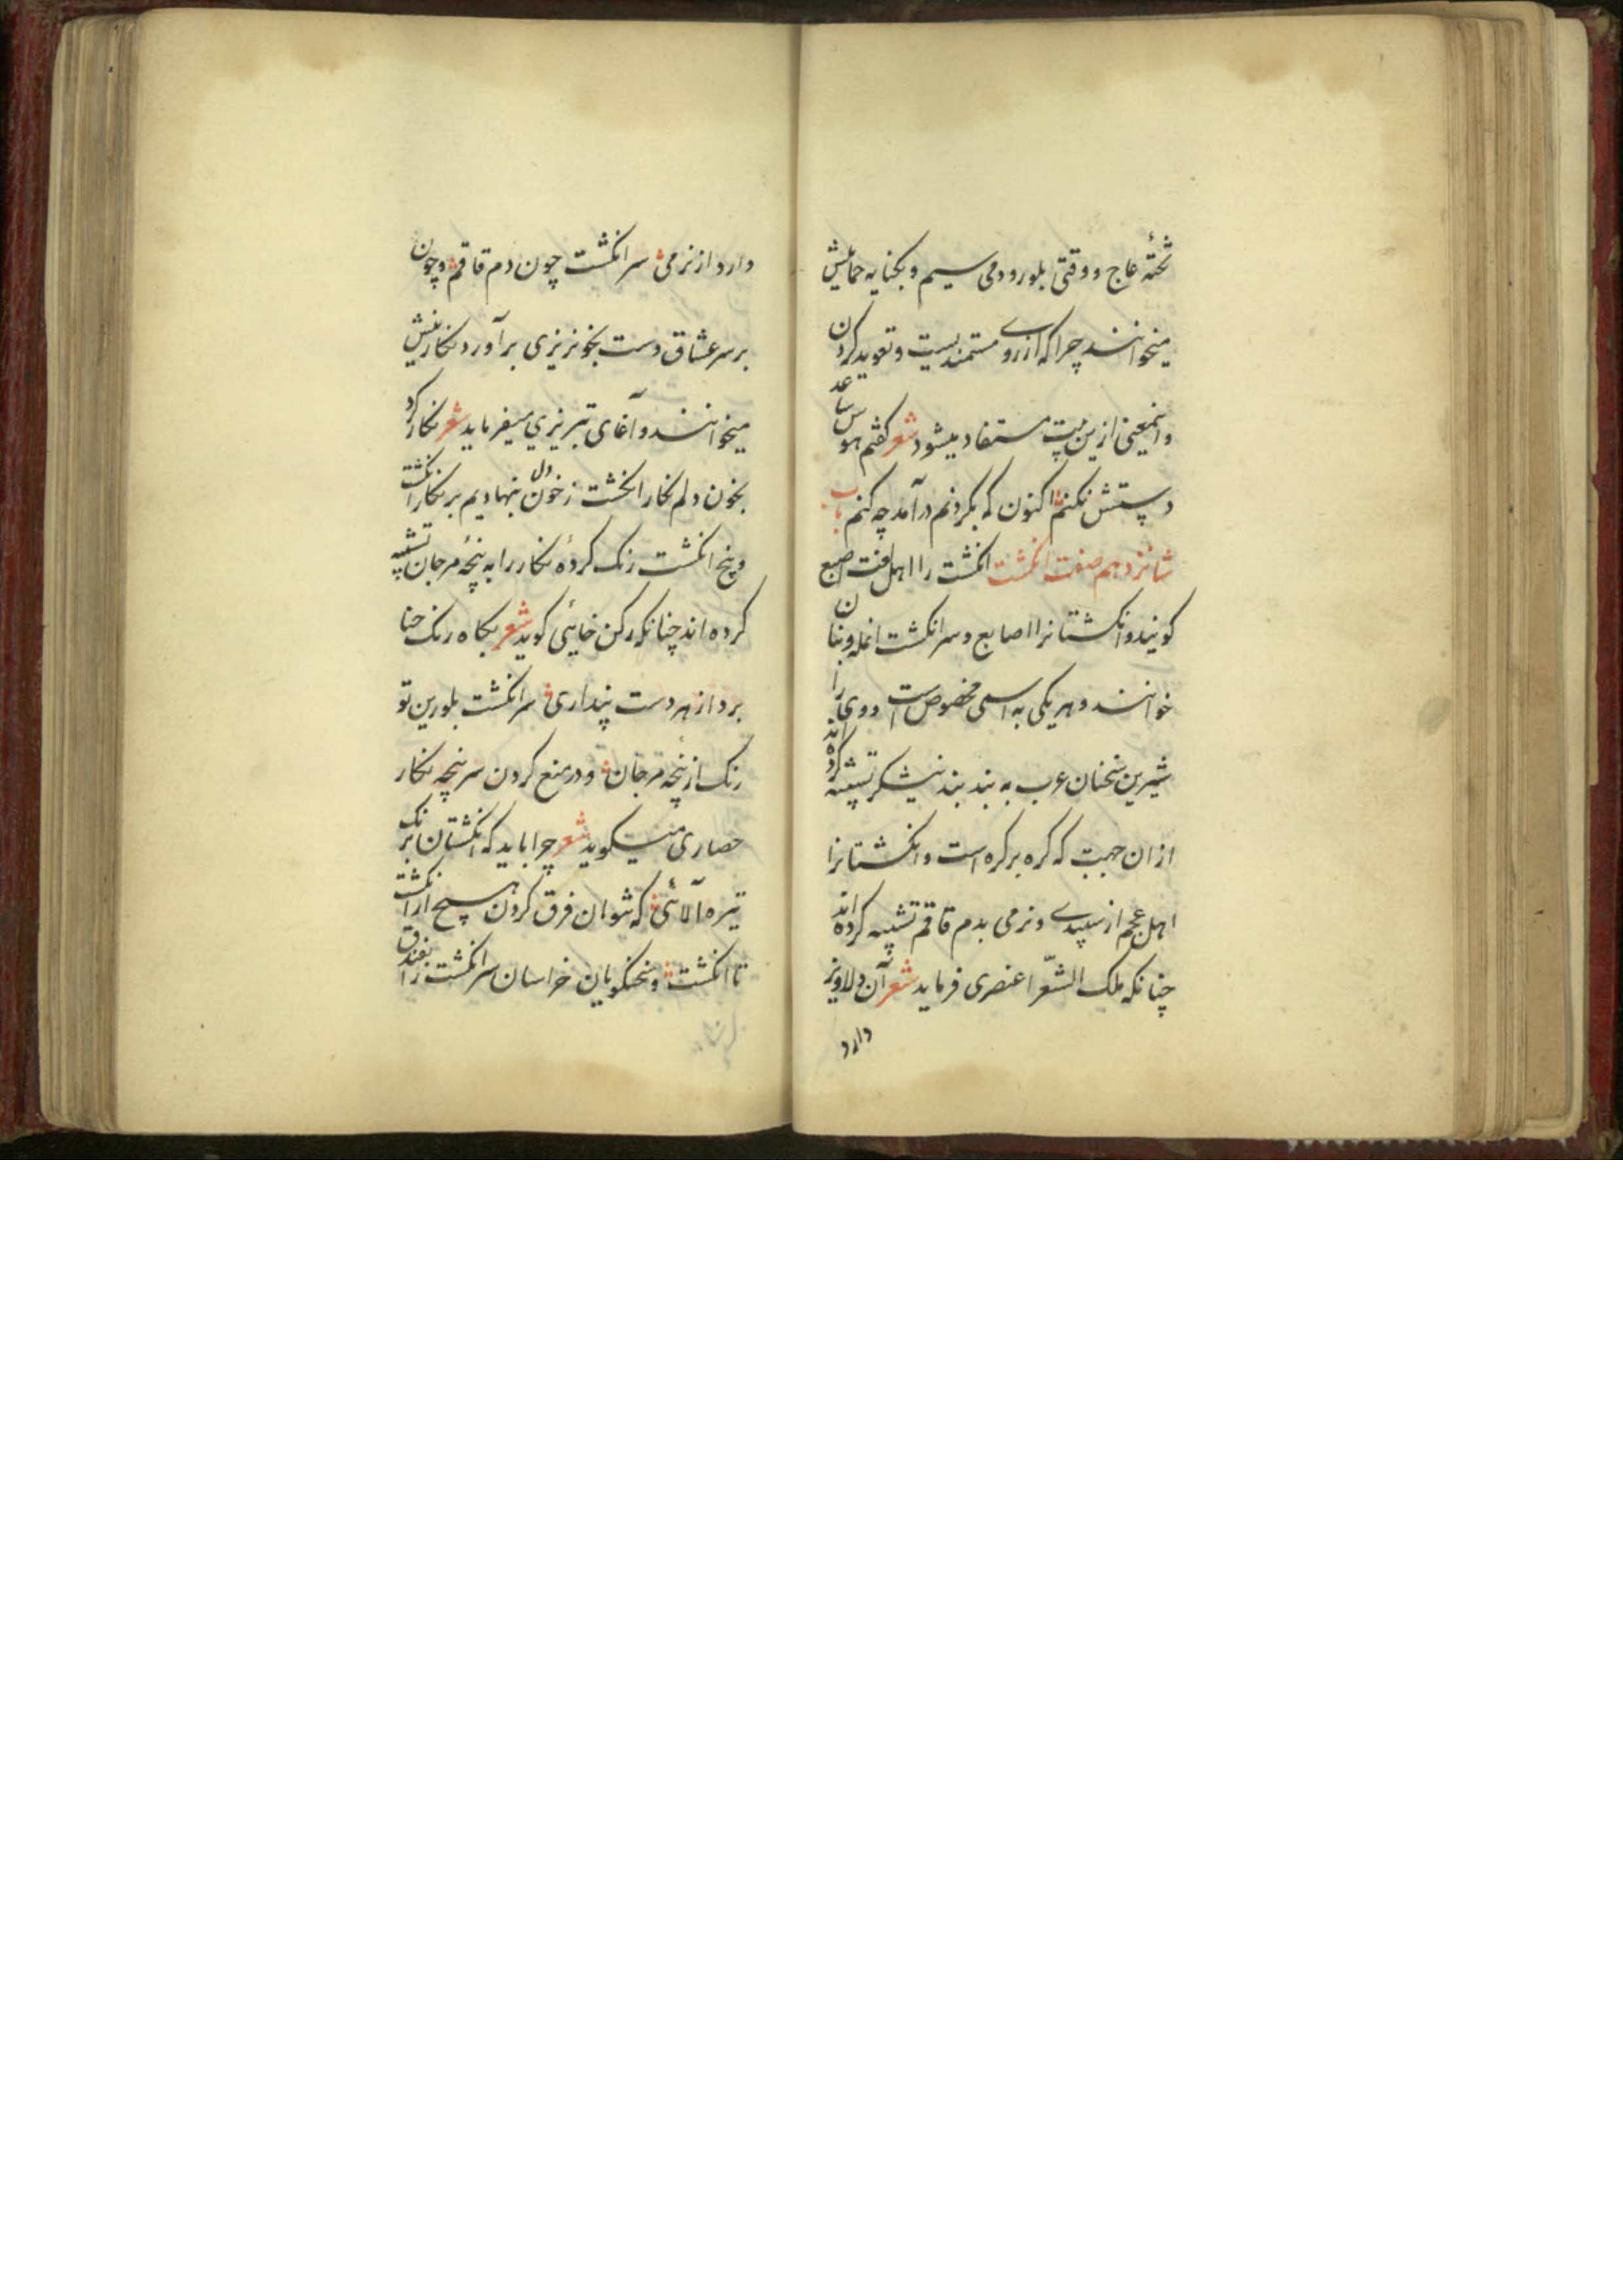 تختهٔ عاج و وقتی بلور و دمی سیم و بکنایه حمایلش
میخوانند چرا که از روے مستمندیست و تعوید کردن
و اینمعنی ازین بیت مستفاد میشود شعر کفتم هوس ساعد
دستش نکنم اکنون که بکردنم درآمد چه کنم باب
شانزدهم صفت انکشت انکشت را اهل لغت اصبع
کویند و انکشتانرا اصابع و سر انکشت انمله و بنان
خوانند و هر یکی به اسمی مخصوص است و وی را
شیرین سخنان عرب به بند بند نیشکر تشبیه کرده اند
ازان جهت که کره بر کره است و انکشتانرا
اهل عجم از سپیدے و نرمی بدم قاقم تشبیه کرده اند
چنانکه ملک الشعّرا عنصری فرماید شعر آن دلاویز
دارد
دارد از نرمی سر انکشت چون دم قاقم و چون
بر سر عشاق دست بخونریزی برآورد نکارینش
میخوانند و آغای تبریزی میفرماید شعر نکار کرد
بخون دلم نکار انکشت ز خون دل بنهادیم بر نکار انکشت
و پنج انکشت رنک کردهٔ نکار را به پنجهٔ مرجان تشبیه
کرده اند چنانکه رکن خایئی کوید شعر بکاه رنک حنا
بردار هر دست پنداری سر انکشت بلورین تو
رنک از پنجهٔ مرجان و در منع کردن سر پنجه نکار
حصاری میکوید شعر چرا باید که انکشتان برنک
تیره آلائی که نتوان فرق کردن هیچ از انکشت
تا انکشت و سخنکویان خراسان سر انکشت را بفندق